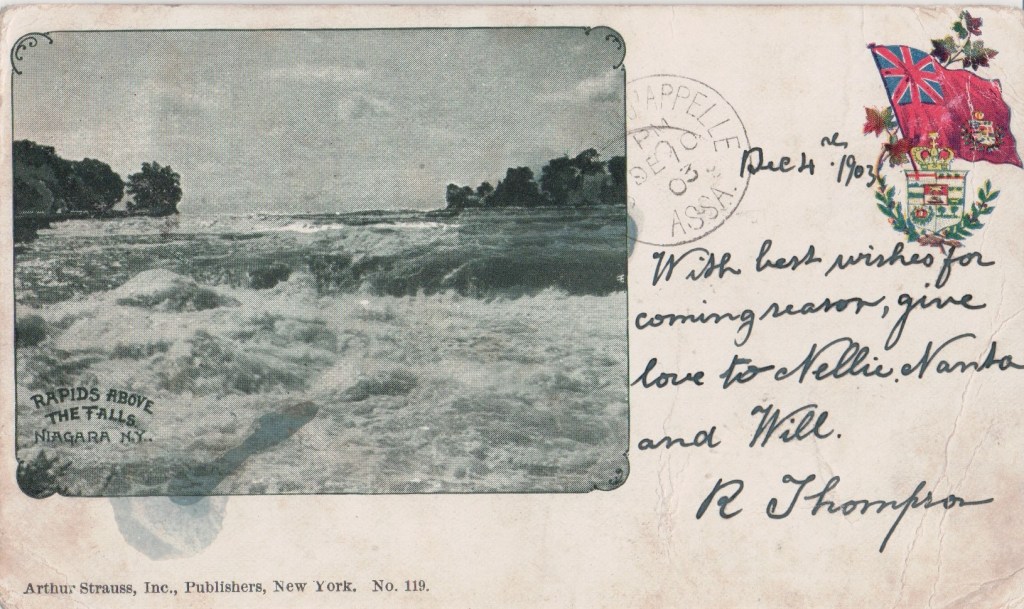 RAPIDS ABOVE
THE FALLS.
NIAGARA N.Y.
Arthur Strauss, Inc., Publishers, New York. No. 119.
'APPELLE
PM
DE 10
03
ASSA.
Dec 4th 1903
With best wishes for
coming season, give
love to Nellie, Nanta
and Will.
R Thompson